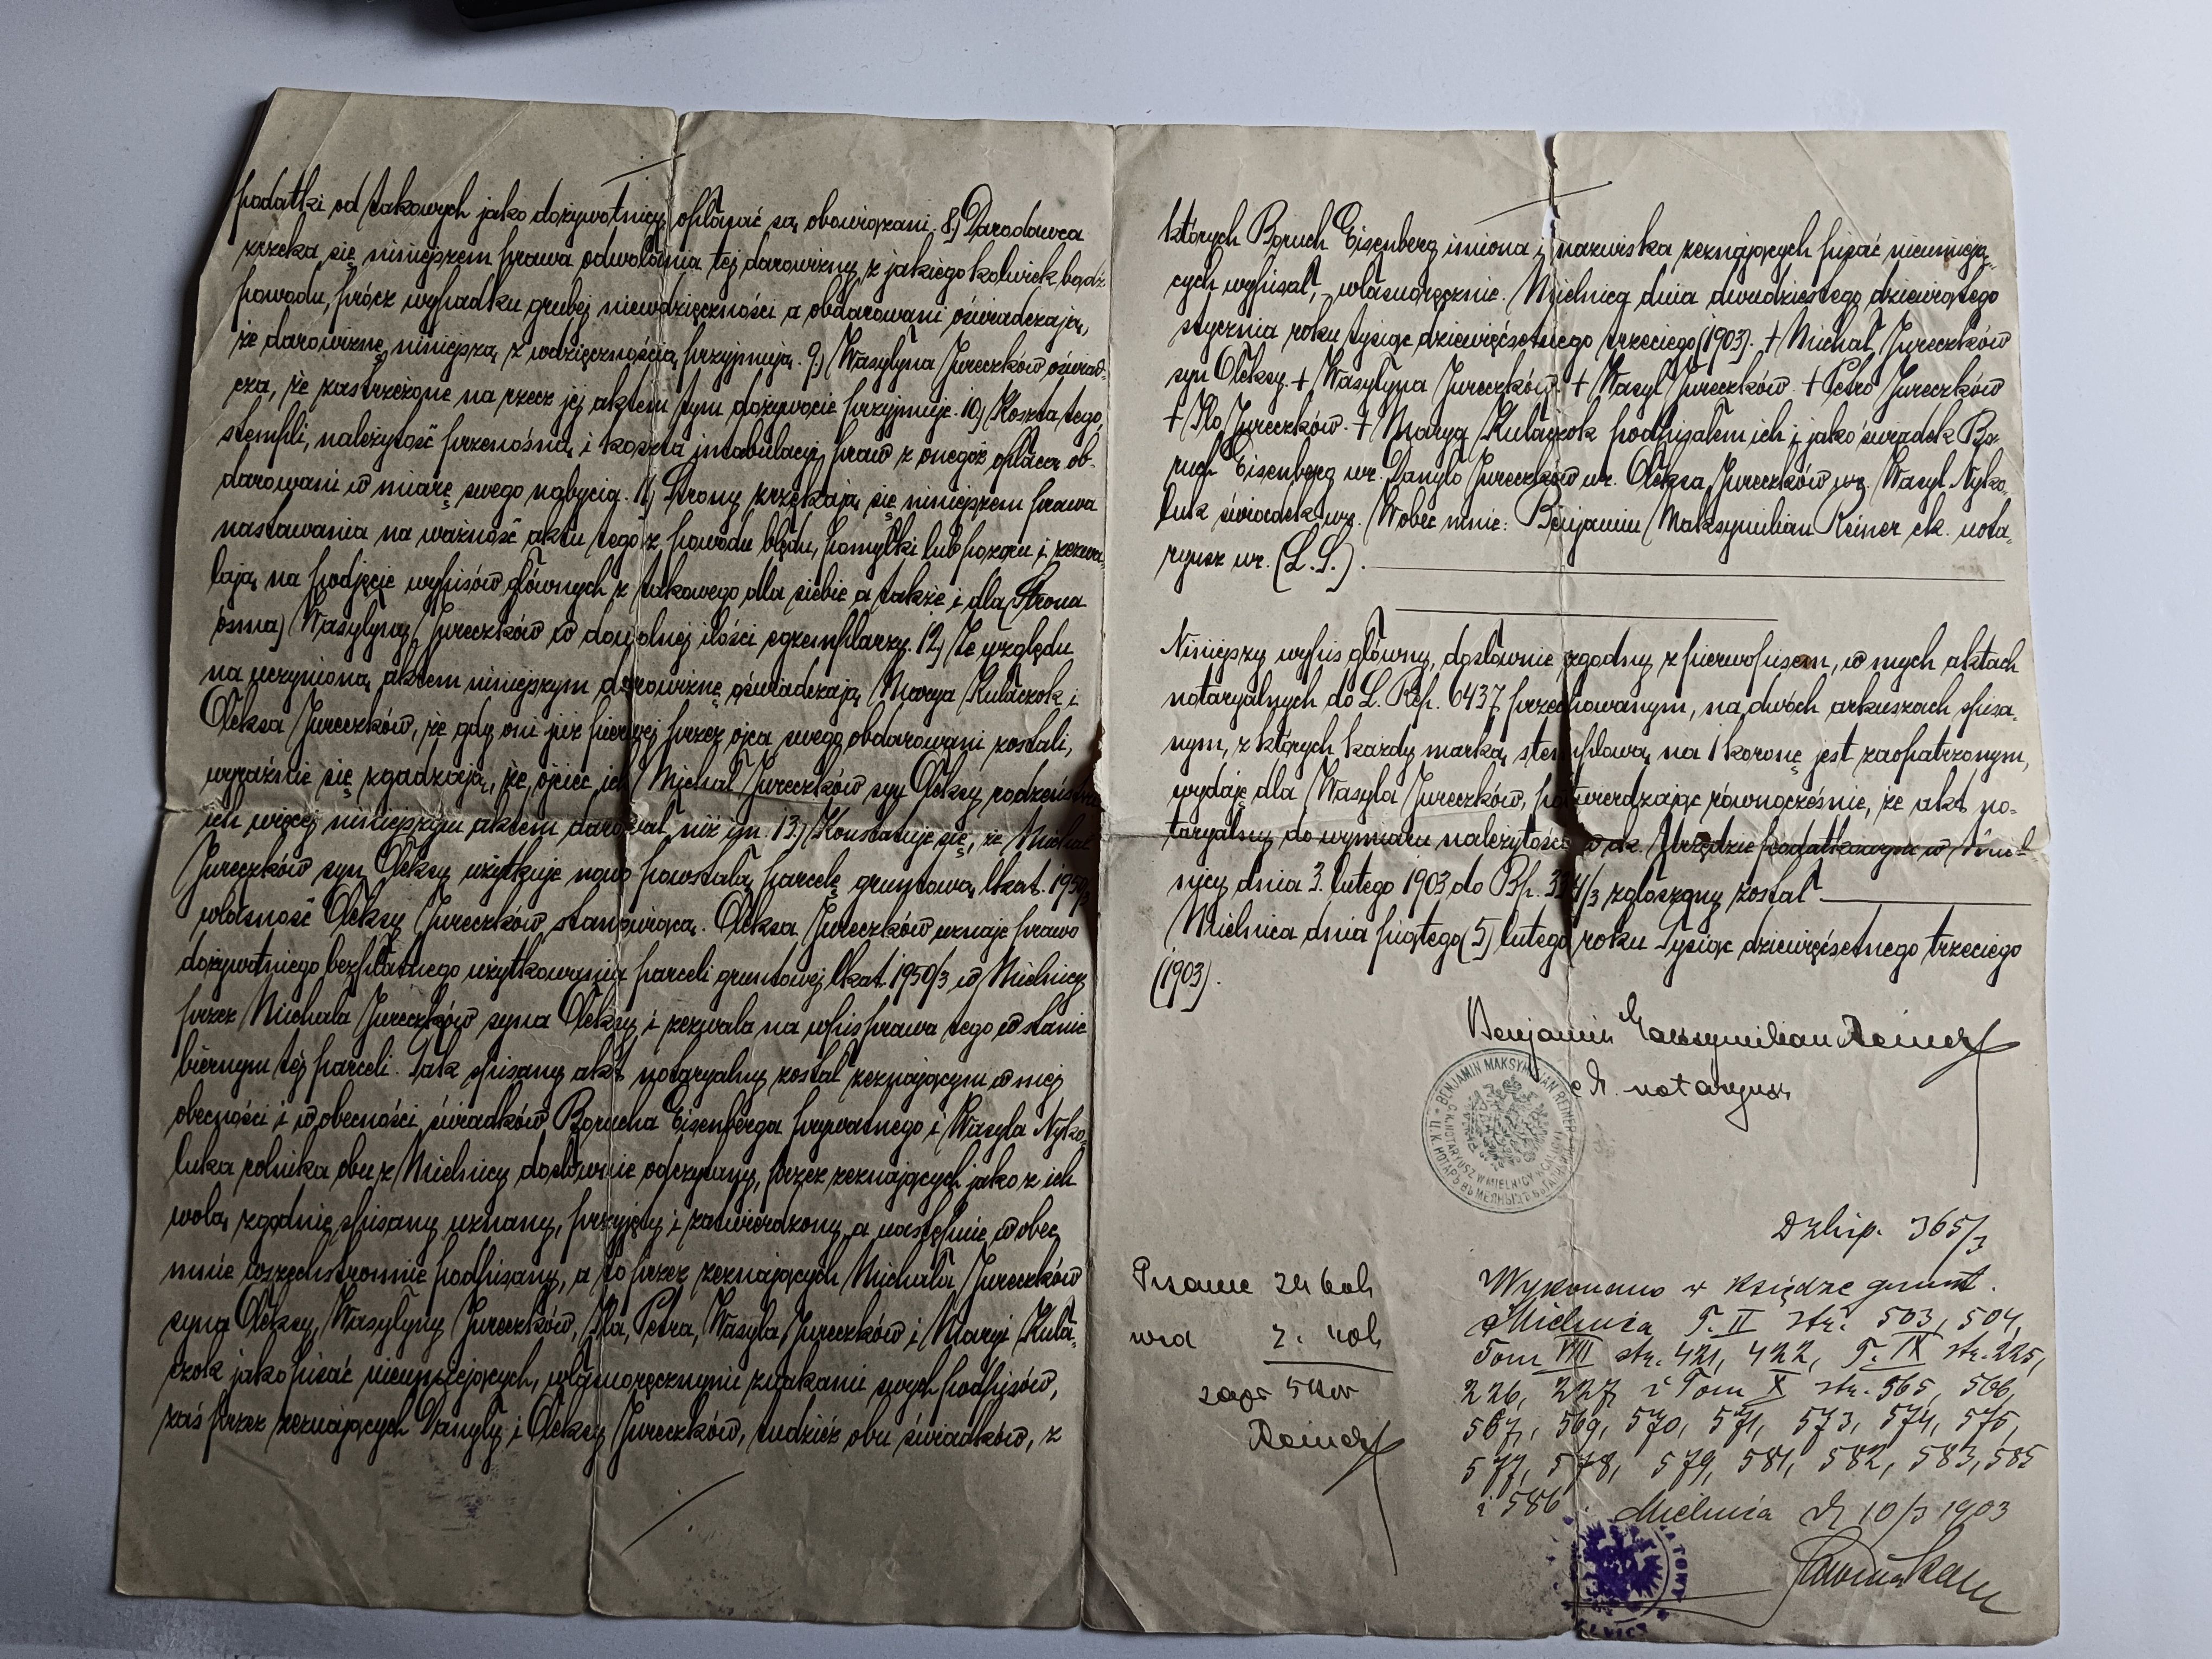 podatki od takowych jako dożywotnicy opłacać są obowiązani. 8) Darodawca
zrzeka się niniejszem prawa odwołania tej darowizny z jakiegokolwiek bądź
powodu, prócz wypadku grubej niewdzięczności a obdarowani oświadczają,
że darowiznę niniejszą z wdzięcznością przyjmują. 9) Wasylyna Jureczków oświad-
cza, że zastrzeżone na rzecz jej aktem tym dożywocie przyjmuje. 10) Koszta tego,
stempli, należytość przenośną i koszta intabulacyi praw z onegoż opłacą ob-
darowani w miarę swego nabycia. 11) Strony zrzekają się niniejszem prawa
nastawania na ważność aktu tego z powodu błędu, pomyłki lub pozoru i zezwa-
lają na podjęcie wypisów głównych z takowego dla siebie a także i dla Strona
ósma) Wasylyny Jureczków w dowolnej ilości egzemplarzy. 12) Ze względu
na uczynioną aktem niniejszym darowiznę oświadczają Marya Kułaczok i
Ołeksa Jureczków, że gdy oni już pierwej przez ojca swego obdarowani zostali,
wyraźnie się zgadzają, że ojciec ich Michał Jureczków syn Ołeksy rodzeństwu
ich więcej niniejszym aktem darował niż im. 13) Konstatuje się, że Michał
Jureczków syn Ołeksy użytkuje nowo powstałą parcelę gruntową lkat. 1950/3
własność Ołeksy Jureczków stanowiącą. Ołeksa Jureczków uznaje prawo
dożywotniego bezpłatnego użytkowania parceli gruntowej lkat. 1950/3 w Mielnicy
przez Michała Jureczków syna Ołeksy i zezwala na wpis prawa tego w stanie
biernym tej parceli. Tak spisany akt notaryalny został zeznającym w mej
obecności i w obecności świadków Borucha Eisenberga prywatnego i Wasyla Nyko-
luka rolnika obu z Mielnicy dosłownie odczytany, przez zeznających jako z ich
wolą zgodnie spisany uznany, przyjęty i zatwierdzony a następnie wobec
mnie wszechstronnie podpisany, a to przez zeznających Michała Jureczków
syna Ołeksy, Wasylyny Jureczków, Ila, Petra, Wasyla Jureczków i Maryi Kuła-
czok jako pisać nieumiejących, własnoręcznymi znakami swych podpisów,
zaś przez zeznających Danyły i Ołeksy Jureczków, tudzież obu świadków, z
których Boruch Eisenberg imiona i nazwiska zeznających pisać nieumieją-
cych wypisał, własnoręcznie. Mielnica dnia dwudziestego dziewiątego
stycznia roku tysiąc dziewięćsetnego trzeciego (1903). + Michał Jureczków
syn Ołeksy. + Wasylyna Jureczków. + Wasyl Jureczków. + Petro Jureczków
+ Ilo Jureczków. + Marya Kułaczok podpisałem ich i jako świadek Bo-
ruch Eisenberg wr. Danyło Jureczków wr. Ołeksa Jureczków wr. Wasyl Nyko-
luk świadek wr. Wobec mnie: Benjamin Maksymilian Reiner ck. nota-
ryusz wr. (L. S.).
Niniejszy wypis główny, dosłownie zgodny z pierwopisem, w mych aktach
notaryalnych do L. Rep. 6437 przechowanym, na dwóch arkuszach spisa-
nym, z których każdy marką stemplową na 1 koronę jest zaopatrzonym,
wydaję dla Wasyla Jureczków, potwierdzając równocześnie, że akt no-
taryalny do wymiaru należytości w ck. Urzędzie podatkowym w Miel-
nicy dnia 3. lutego 1903 do Bp. 334/3 zgłoszony został
Mielnica dnia piątego (5) lutego roku Tysiąc dziewięćsetnego trzeciego
(1903).
Benjamin Maksymilian Reiner
ck. notaryusz
BENJAMIN MAKSYMILIAN REINER
C. K. NOTARYUSZ W MIELNICY
Dzhip. 365/3
Wykonano w księdze grunt.
Mielnica T. II str. 503, 504,
Tom VIII str. 421, 422, T. IX str. 225,
226, 227 i Tom X str. 565, 566,
567, 569, 570, 571, 573, 574, 575,
577, 578, 579, 581, 582, 583, 585
i 586. Mielnica d. 10/3 1903
Reiner